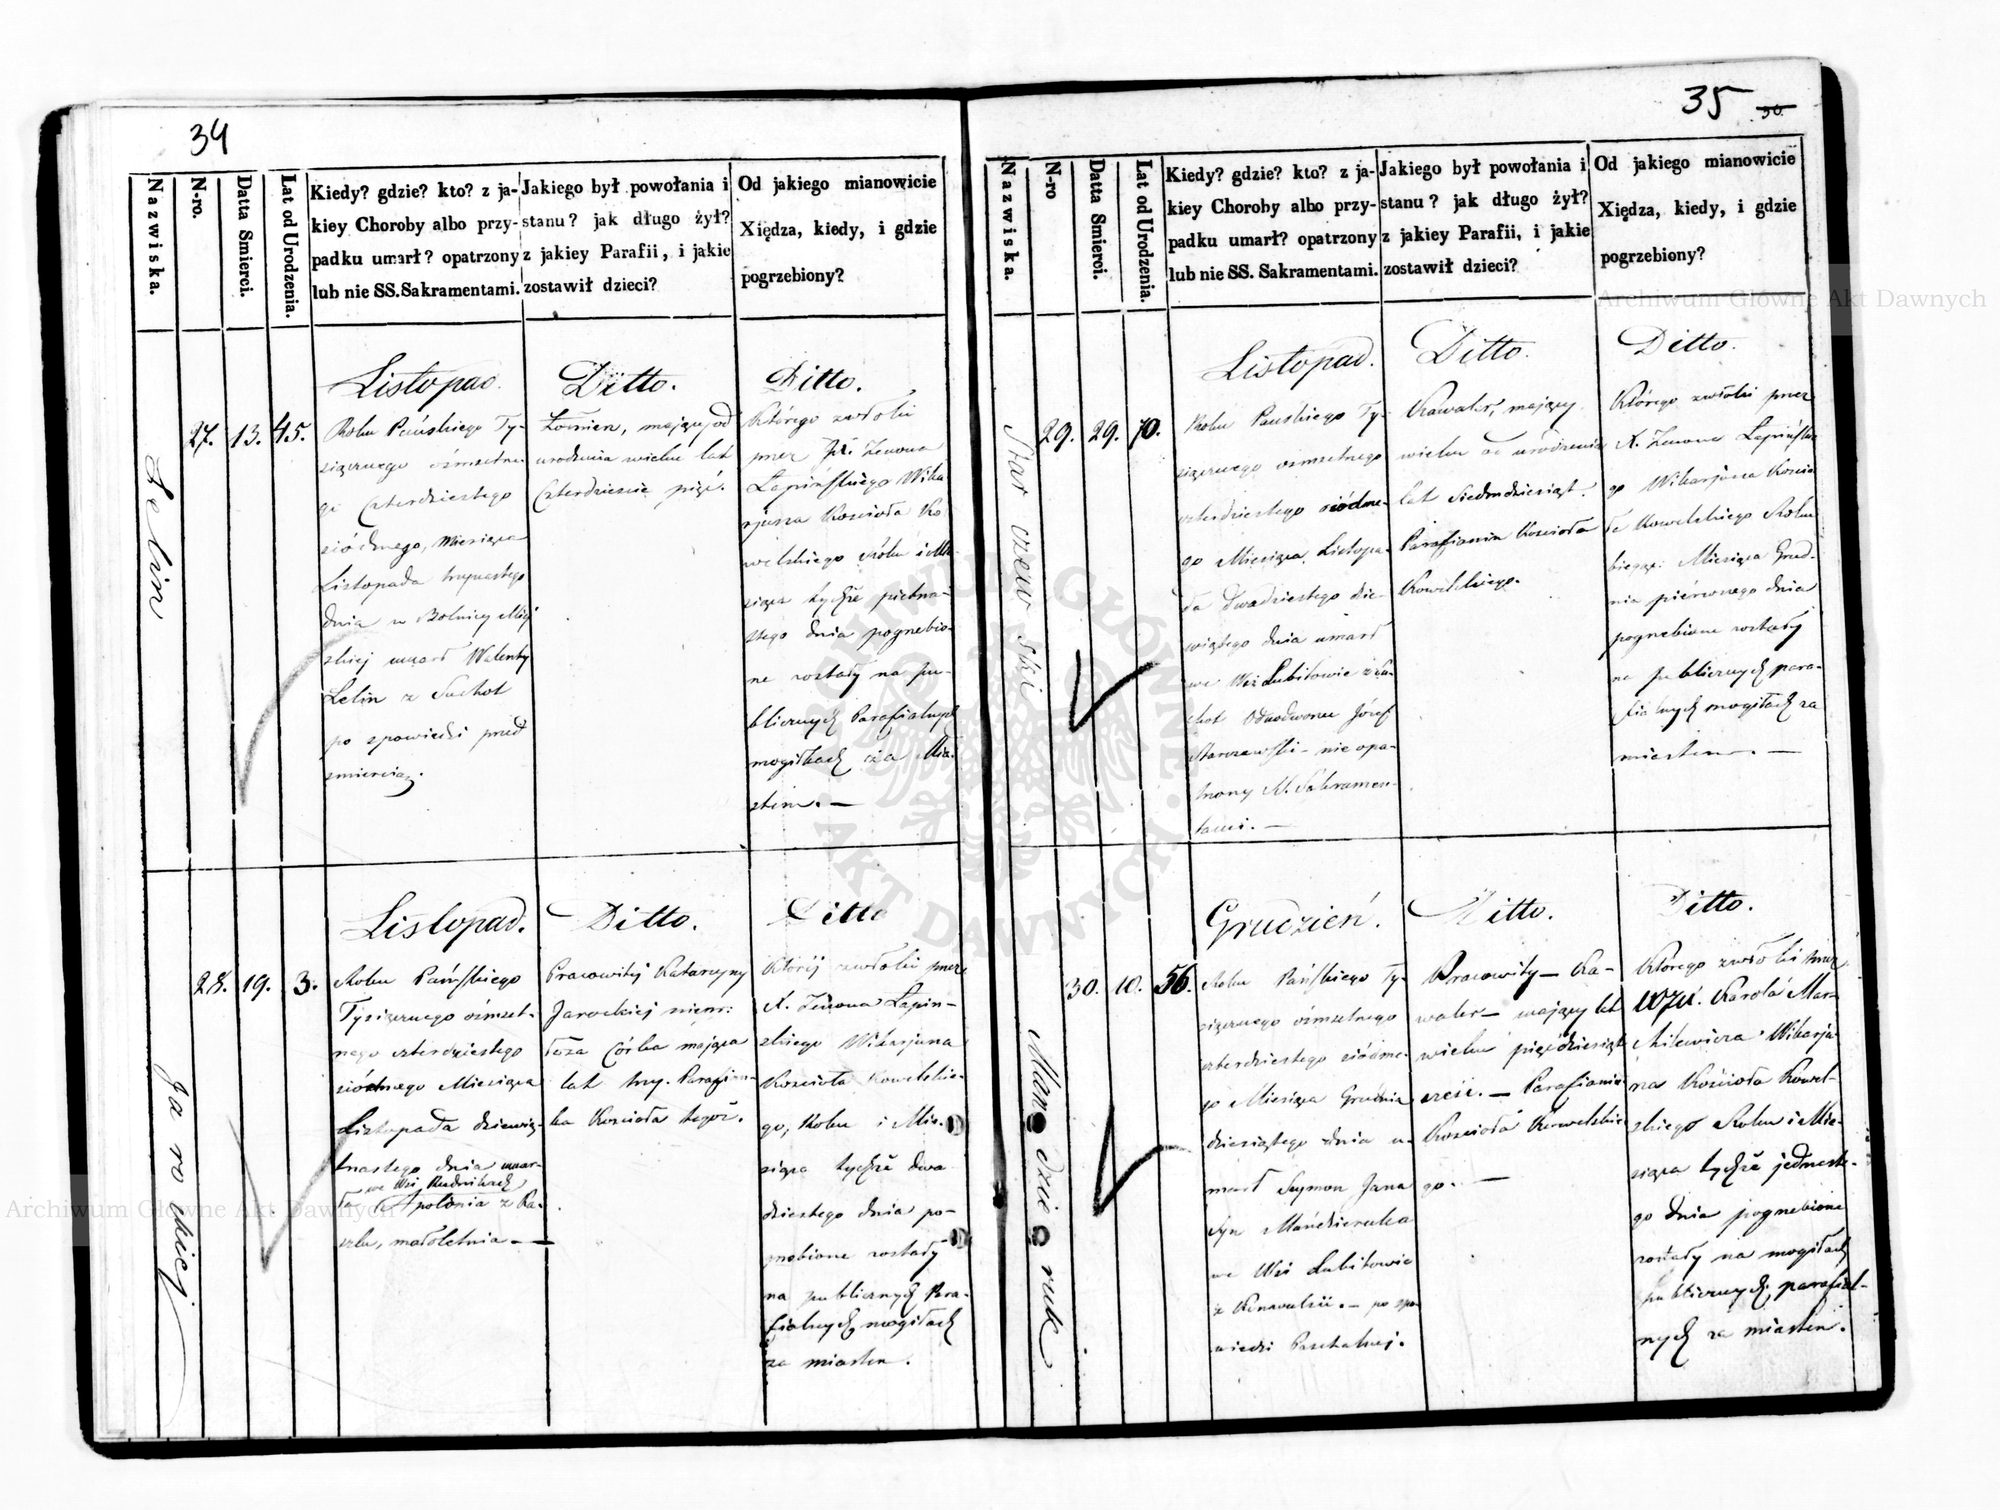 34
Nazwiska.
N-ro.
Datta Smierci.
Lat od Urodzenia.
Kiedy? gdzie? kto? z ja-
kiey Choroby albo przy-
padku umarł? opatrzony
lub nie SS. Sakramentami.
Jakiego był powołania i
stanu? jak długo żył?
z jakiey Parafii, i jakie
zostawił dzieci?
Od jakiego mianowicie
Xiędza, kiedy, i gdzie
pogrzebiony?
Lelin
27. 13. 45.
Listopad.
Roku Pańskiego Ty-
siącznego ośmsetne-
go Czterdziestego
siódmego, Miesiąca
Listopada trzynastego
dnia w Bolnicy Miej
skiej umarł Walenty
Lelin z Suchot
po spowiedzi przed
śmiercią.
Ditto.
Żołnierz, mający od
urodzenia wieku lat
Czterdzieście pięć.
Ditto.
Którego zwłoki
przez X. Zenona
Łapińskiego Wika
rjusza Kościoła Ko
welskiego Roku i Mie-
siąca tychże piętna-
stego dnia pogrzebio-
ne zostały na pu-
blicznych Parafialnych
mogiłkach za Mia-
stem. —
Jarockiej
28. 19. 3.
Listopad.
Roku Pańskiego
Tysiącznego ośmset-
nego czterdziestego
siódmego Miesiąca
Listopada dziewięt-
nastego dnia umar-
we Wsi Rudnikach
ła Apolonia z Ka-
szlu, małoletnia —
Ditto.
Pracowitej Katarzyny
Jarockiej niezm:
łoża Córka mająca
lat trzy. Parafian-
ka Kościoła tegoż.
Ditto
Której zwłoki przez
X. Zenona Łapin-
skiego Wikarjusza
Kościoła Kowelskie-
go, Roku i Mie-
siąca tychże dwu
dziestego dnia po-
grzebione zostały
na publicznych Para-
fialnych mogiłach
za miastem.
35 36
Nazwiska.
N-ro
Datta Smierci.
Lat od Urodzenia.
Kiedy? gdzie? kto? z ja-
kiey Choroby albo przy-
padku umarł? opatrzony
lub nie SS. Sakramentami.
Jakiego był powołania i
stanu? jak długo żył?
z jakiey Parafii, i jakie
zostawił dzieci?
Od jakiego mianowicie
Xiędza, kiedy, i gdzie
pogrzebiony?
Starczewski
29. 29. 70.
Listopad.
Roku Pańskiego Ty-
siącznego ośmsetnego
czterdziestego siódme-
go Miesiąca Listopa-
da dwudziestego dzie-
wiątego dnia umarł
we Wsi Lubitowie z Su-
chot Odnodworzec Józef
Starczewski – nie opa-
trzony S. Sakramen-
tami. —
Ditto.
Kawaler, mający
wieku od urodzenia
lat Siedmdziesiąt.
Parafianin Kościoła
Kowelskiego.
Ditto.
Którego zwłoki przez
X. Zenona Łapińskie
go Wikarjusza Kościo
ła Kowelskiego Roku
bieżąc: Miesiąca Grud-
nia pierwszego dnia
pogrzebione zostały
na publicznych para-
fialnych mogiłach za
miastem. —
Marodzieruk
30. 10. 56.
Grudzień.
Roku Pańskiego Ty-
siącznego ośmsetnego
czterdziestego siódme-
go Miesiąca Grudnia
dziesiątego dnia u-
marł Szymon Jana
Syn
we Wsi Lubitowie
z Konwulsii. — po spo-
wiedzi Paschalnej.
Ditto.
Pracowity — Ka-
waler — mający lat
wieku pięćdziesiąt
sześć. — Parafianin
Kościoła Kowelskie
go. —
Ditto.
Którego zwłoki przez
Karola Mar-
Wikarju-
sza Kościoła Kowel-
skiego Roku i Mie-
siąca tychże jednaste-
go dnia pogrzebione
zostały na mogiłach
publicznych, parafial-
nych za miastem.
Archiwum Główne Akt Dawnych
Archiwum Główne Akt Dawnych
ARCHIWUM GŁÓWNE · AKT DAWNYCH ·